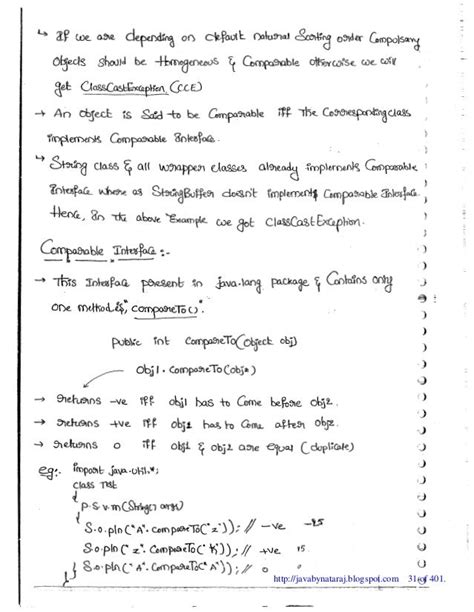 ↳ If we are depending on default natural Sorting order Compulsory
objects should be Homogeneous & Comparable otherwise we will
get ClassCastException (CCE)
→ An object is Said to be Comparable iff The Corresponding class
implements Comparable Interface.
↳ String class & all wrapper classes already implements Comparable
Interface where as StringBuffer doesn't implements Comparable Interface
Hence, In the above Example we got ClassCastException.
Comparable Interface :-
→ This Interface present in java.lang package & Contains only
one method is, "compareTo()".
public int compareTo(Object obj)
obj1.compareTo(obj2)
→ returns -ve iff obj1 has to Come before obj2.
→ returns +ve iff obj1 has to Come after obj2.
→ returns 0 iff obj1 & obj2 are equal (duplicate)
eg:- import java.util.*;
class Test
{
p.s.v.m(String[] args)
{
S.o.pln("A".compareTo("z")); // -ve -25
S.o.pln("z".compareTo("K")); // +ve 15
S.o.pln("A".compareTo("A")); // 0
http://javabynataraj.blogspot.com 31 of 401.